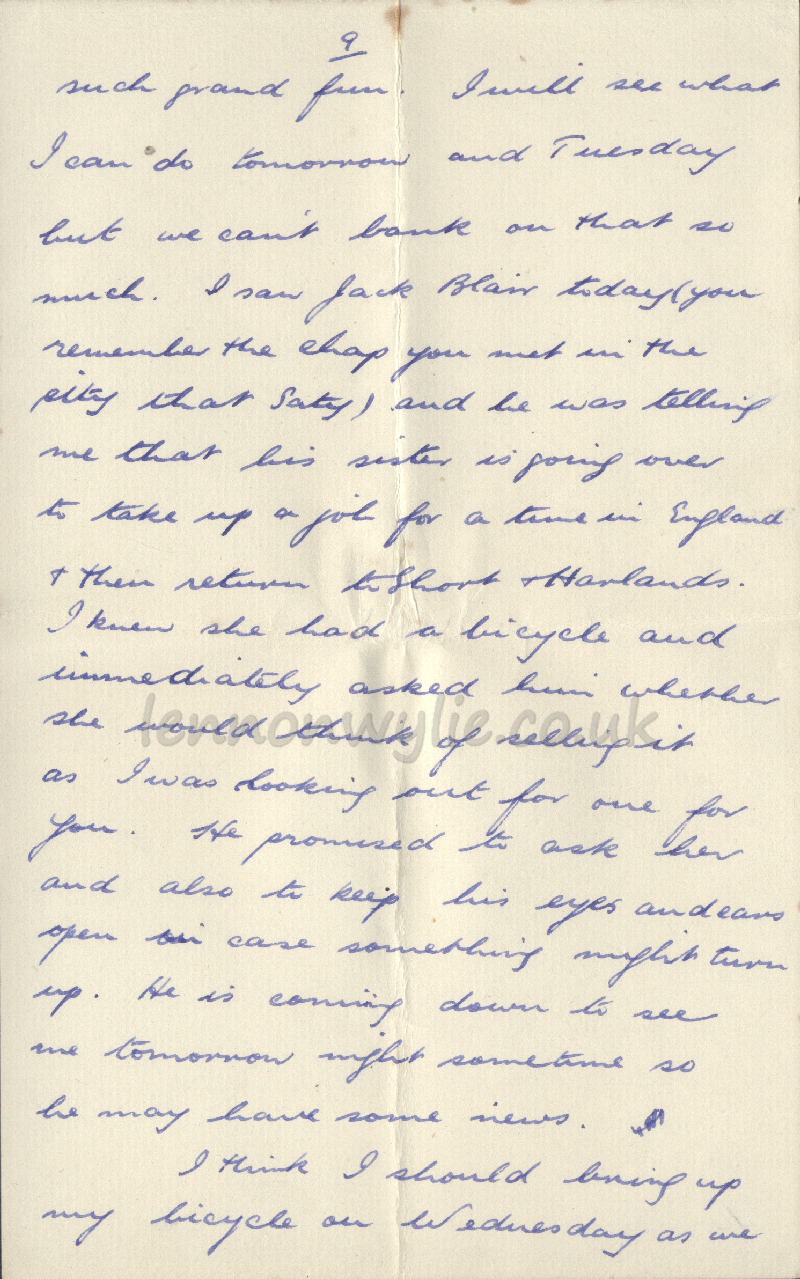 9
such grand fun. I will see what
I can do tomorrow and Tuesday
but we can't bank on that so
much. I saw Jack Blair today (you
remember the chap you met in the
city that Saty) and he was telling
me that his sister is going over
to take up a job for a time in England
& then return to Short & Harlands.
I knew she had a bicycle and
immediately asked him whether
she would think of selling it
as I was looking out for one for
you. He promised to ask her
and also to keep his eyes and ears
open in case something might turn
up. He is coming down to see
me tomorrow night sometime so
he may have some news.
I think I should bring up
my bicycle on Wednesday as we
lennonwylie.co.uk